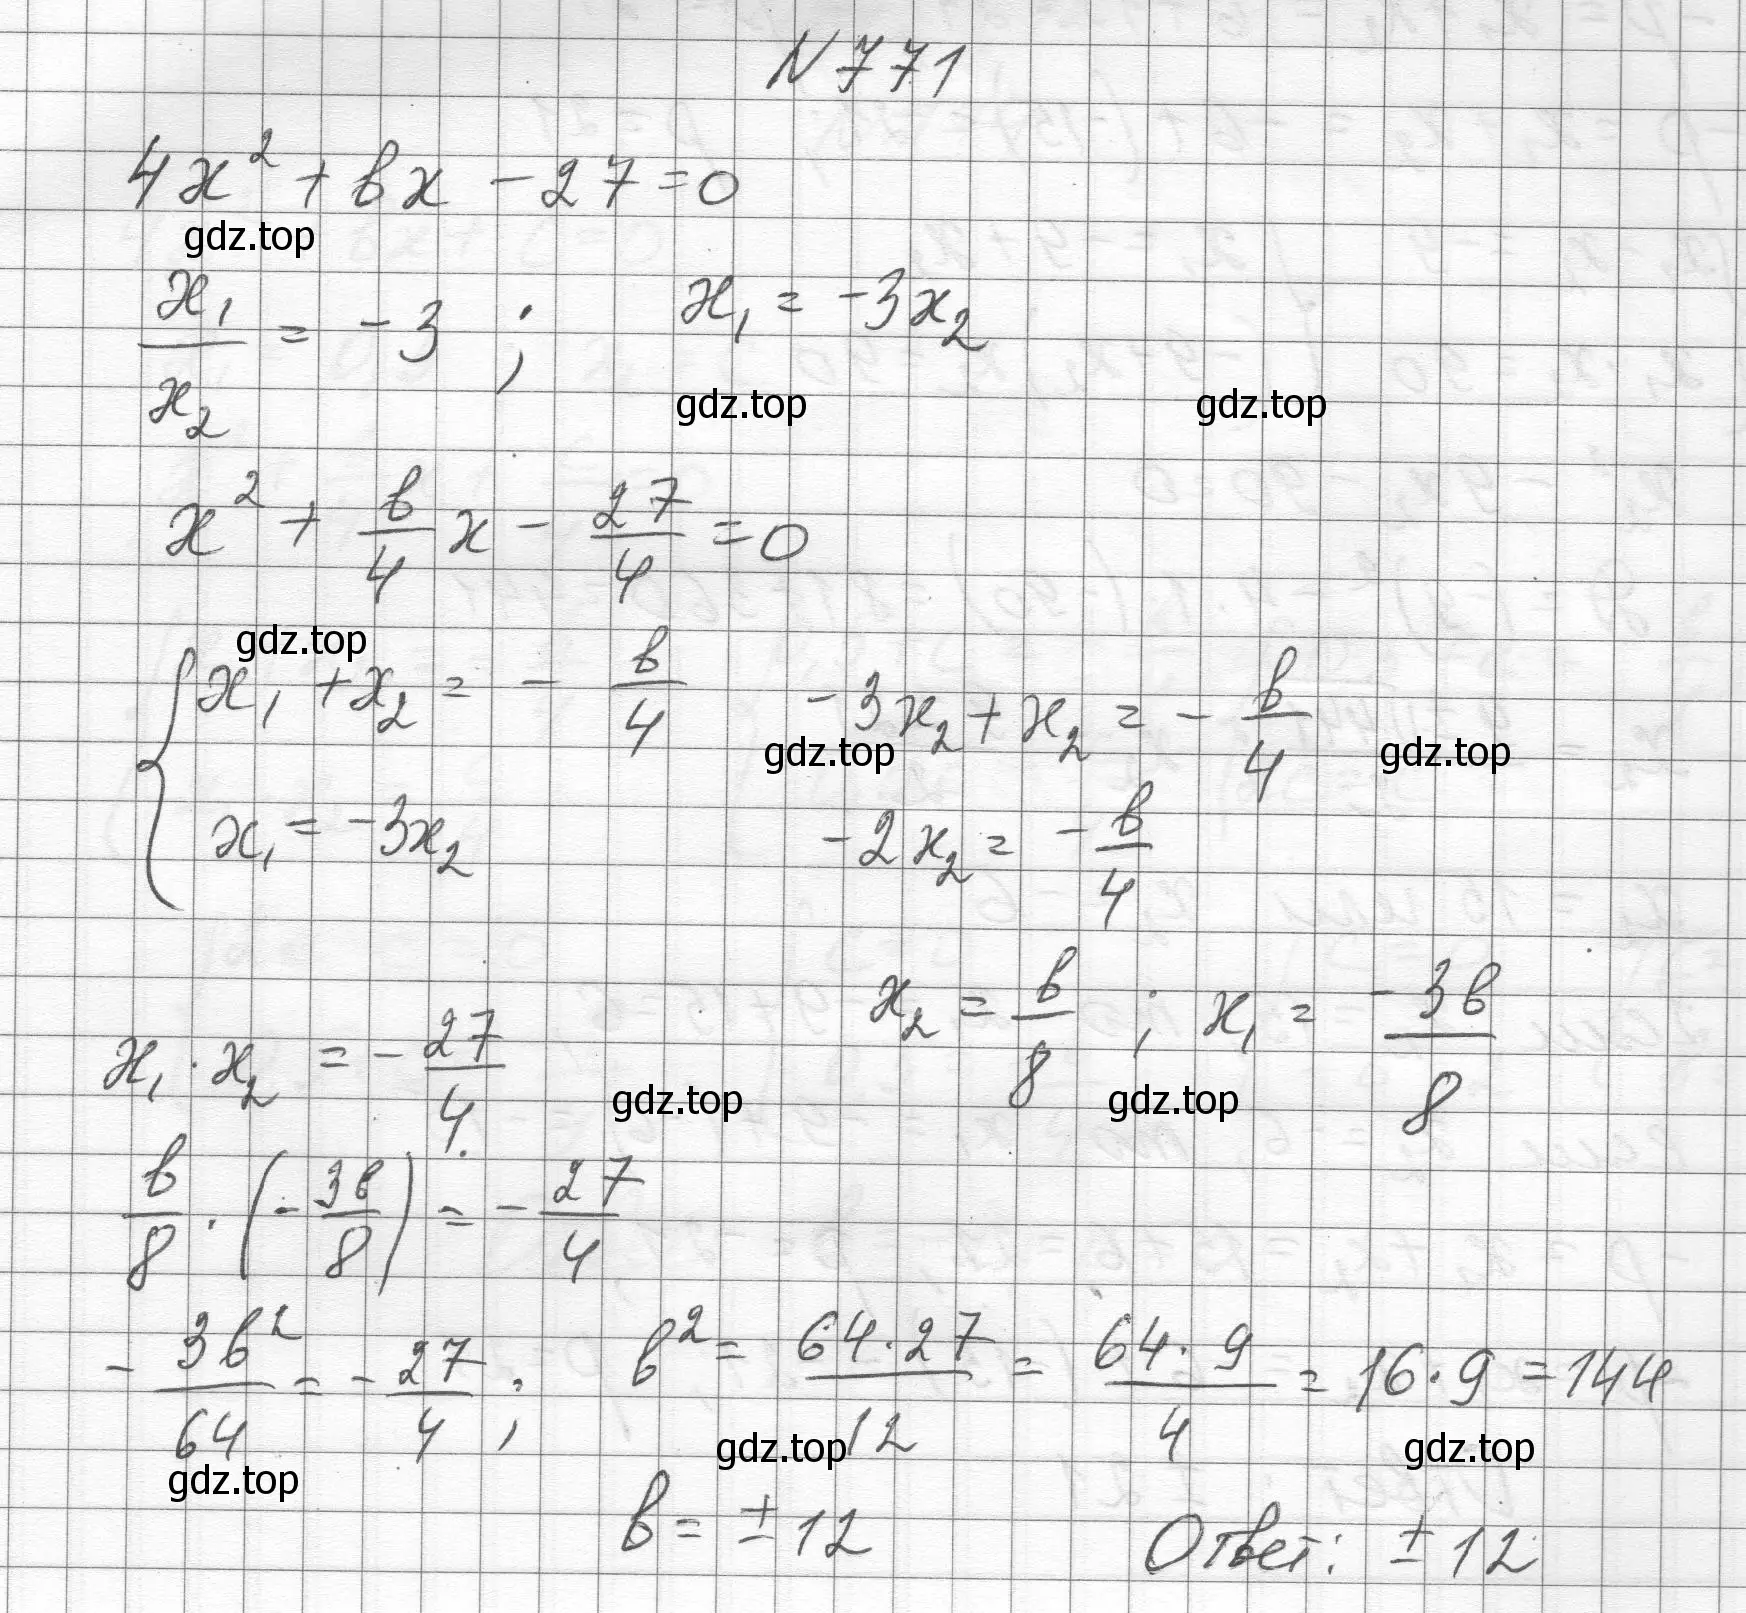 N 771
4x² + bx - 27 = 0
gdz.top
x₁/x₂ = -3 ; x₁ = -3x₂
gdz.top gdz.top
x² + b/4 x - 27/4 = 0
gdz.top
{ x₁ + x₂ = - b/4 -3x₂ + x₂ = - b/4
gdz.top gdz.top
x₁ = -3x₂ -2x₂ = - b/4
x₂ = b/8 ; x₁ = -3b/8
x₁ · x₂ = - 27/4
gdz.top gdz.top
b/8 · (- 3b/8) = - 27/4
- 3b²/64 = - 27/4 ; b² = 64·27/12 = 64·9/4 = 16·9 = 144
gdz.top gdz.top gdz.top
b = ± 12 Ответ: ± 12